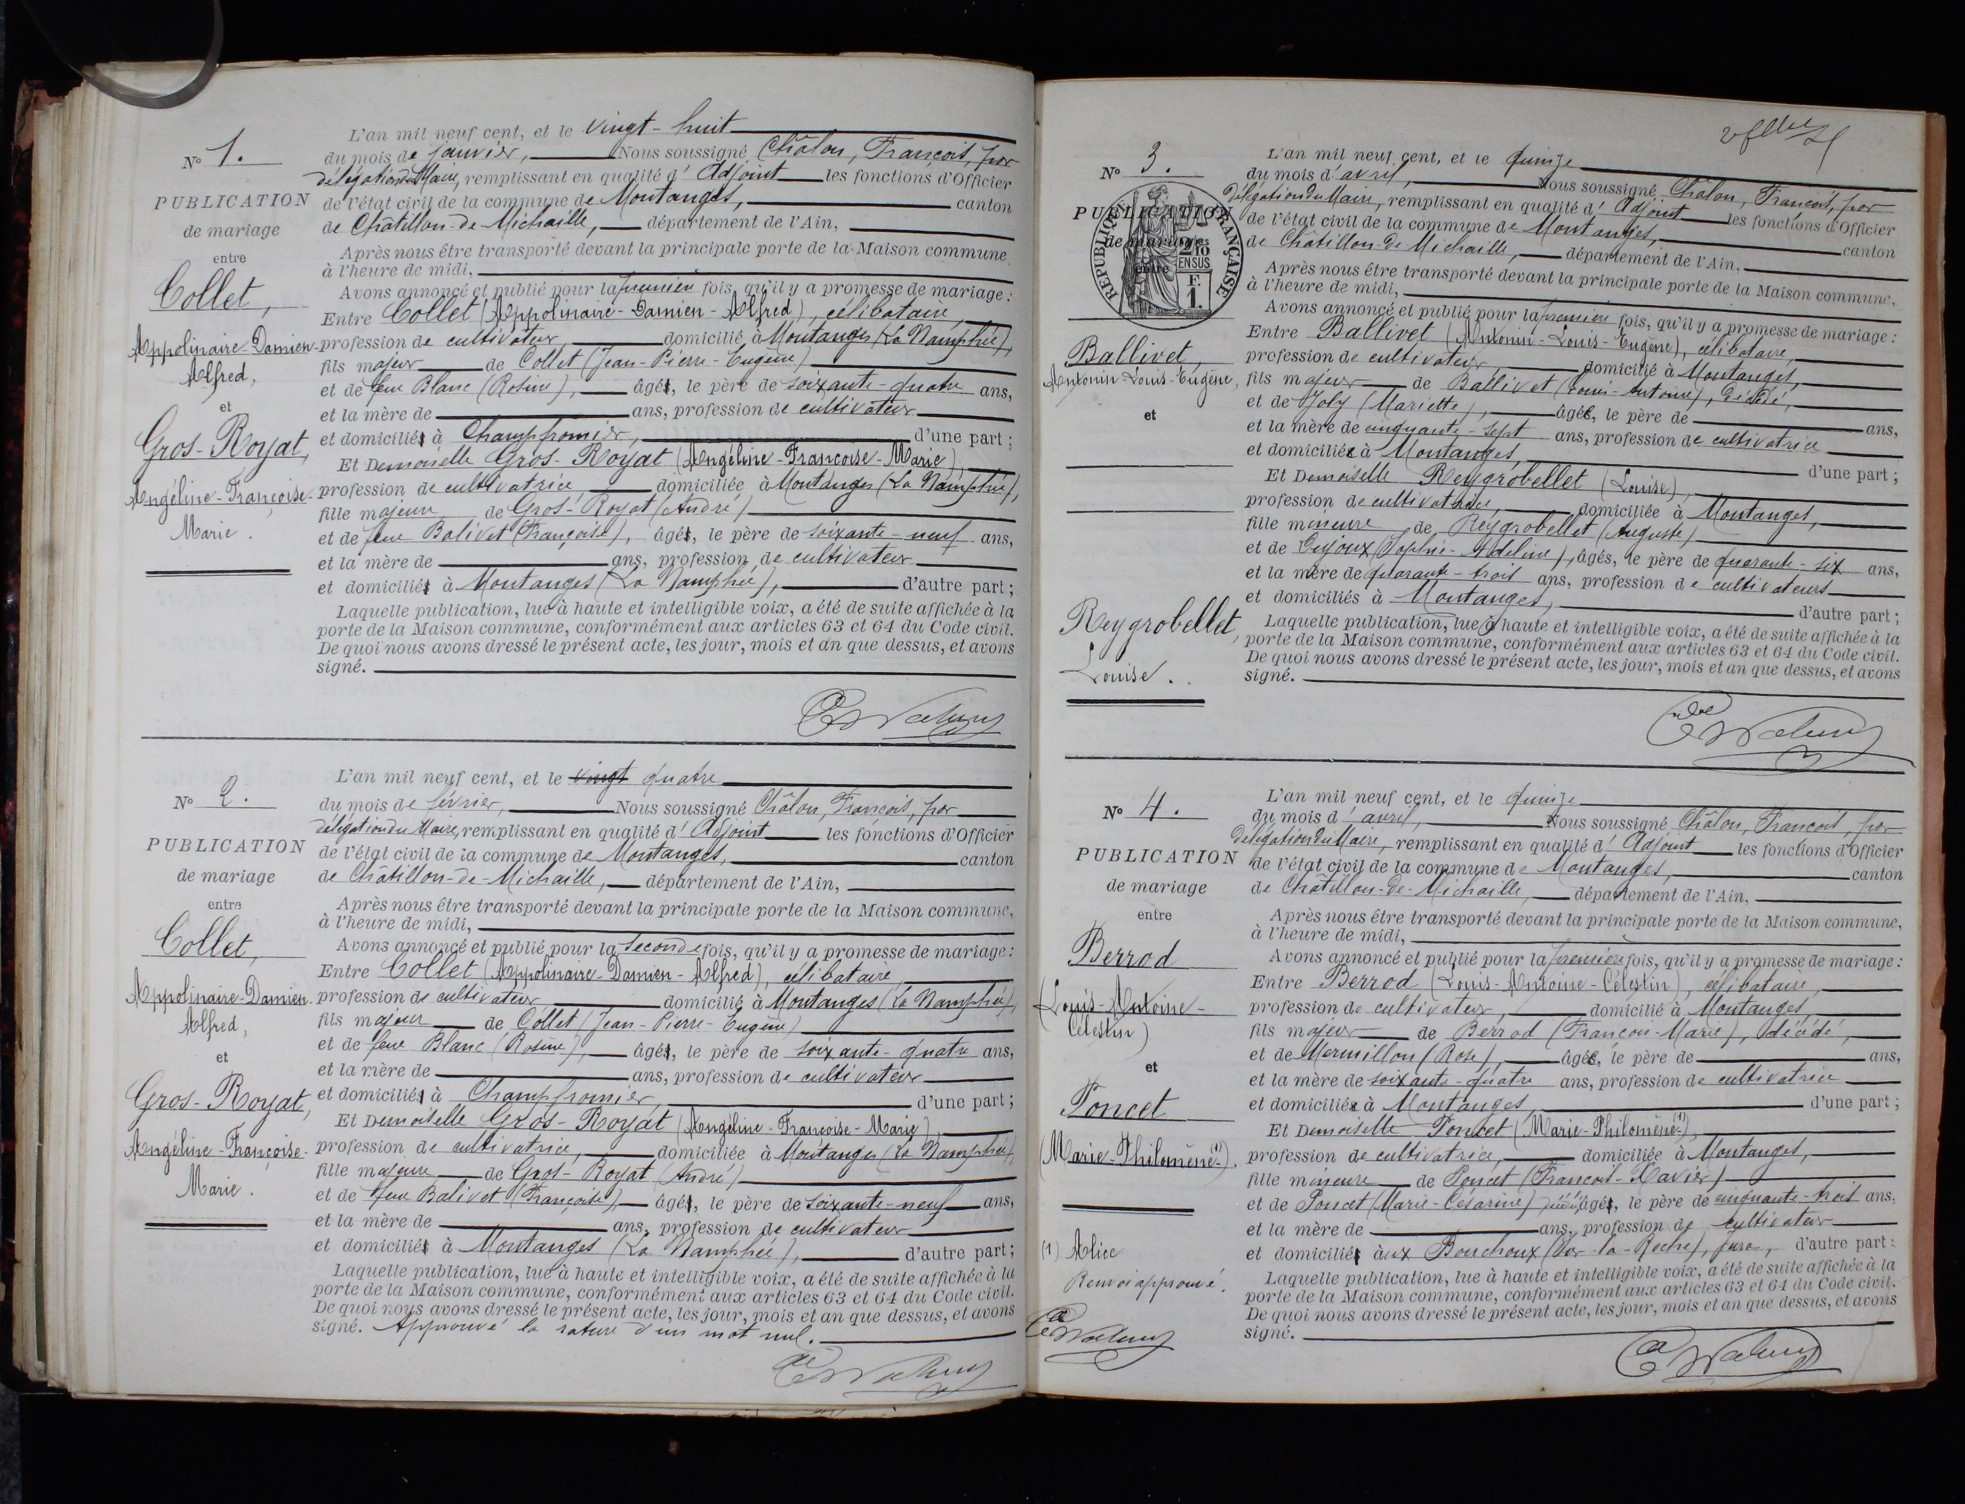 N° 1.
PUBLICATION
de mariage
entre
Collet,
Appolinaire-Damien-
Alfred,
et
Gros-Royat,
Angéline-Françoise-
Marie.
L'an mil neuf cent, et le vingt-huit
du mois de janvier, Nous soussigné Châlon, François, par
délégation du Maire, remplissant en qualité d'Adjoint les fonctions d'Officier
de l'état civil de la commune de Montanges, canton
de Châtillon-de-Michaille, département de l'Ain,
Après nous être transporté devant la principale porte de la Maison commune
à l'heure de midi,
Avons annoncé et publié pour la première fois, qu'il y a promesse de mariage:
Entre Collet (Appolinaire-Damien-Alfred), célibataire,
profession de cultivateur, domicilié à Montanges (La Namphée),
fils majeur de Collet (Jean-Pierre-Eugène)
et de feue Blanc (Rosine), âgés, le père de soixante-quatre ans,
et la mère de ans, profession de cultivateur
et domiciliés à Champfromier, d'une part;
Et Demoiselle Gros-Royat (Angéline-Françoise-Marie),
profession de cultivatrice domiciliée à Montanges (La Namphée),
fille majeure de Gros-Royat (André)
et de feue Balivet (Françoise), âgés, le père de soixante-neuf ans,
et la mère de ans, profession de cultivateur
et domiciliés à Montanges (La Namphée), d'autre part;
Laquelle publication, lue à haute et intelligible voix, a été de suite affichée à la
porte de la Maison commune, conformément aux articles 63 et 64 du Code civil.
De quoi nous avons dressé le présent acte, les jour, mois et an que dessus, et avons
signé.
N° 2.
PUBLICATION
de mariage
entre
Collet,
Appolinaire-Damien-
Alfred,
et
Gros-Royat,
Angéline-Françoise-
Marie.
L'an mil neuf cent, et le vingt quatre
du mois de février, Nous soussigné Châlon, François, par
délégation du Maire, remplissant en qualité d'Adjoint les fonctions d'Officier
de l'état civil de la commune de Montanges, canton
de Châtillon-de-Michaille, département de l'Ain,
Après nous être transporté devant la principale porte de la Maison commune,
à l'heure de midi,
Avons annoncé et publié pour la seconde fois, qu'il y a promesse de mariage:
Entre Collet (Appolinaire-Damien-Alfred), célibataire,
profession de cultivateur domicilié à Montanges (La Namphée),
fils majeur de Collet (Jean-Pierre-Eugène)
et de feue Blanc (Rosine), âgés, le père de soixante-quatre ans,
et la mère de ans, profession de cultivateur
et domiciliés à Champfromier, d'une part;
Et Demoiselle Gros-Royat (Angéline-Françoise-Marie),
profession de cultivatrice, domiciliée à Montanges (La Namphée),
fille majeure de Gros-Royat (André)
et de feue Balivet (Françoise), âgés, le père de soixante-neuf ans,
et la mère de ans, profession de cultivateur
et domiciliés à Montanges (La Namphée), d'autre part;
Laquelle publication, lue à haute et intelligible voix, a été de suite affichée à la
porte de la Maison commune, conformément aux articles 63 et 64 du Code civil.
De quoi nous avons dressé le présent acte, les jour, mois et an que dessus, et avons
signé. Approuvé la rature d'un mot nul.
N° 3.
PUBLICATION
de mariage
entre
RÉPUBLIQUE FRANÇAISE
2/10
EN SUS
F.
1.
Ballivet,
Antonin-Louis-Eugène,
et
Reygrobellet,
Louise.
L'an mil neuf cent, et le quinze
du mois d'avril, Nous soussigné Châlon, François, par
délégation du Maire, remplissant en qualité d'Adjoint les fonctions d'Officier
de l'état civil de la commune de Montanges, canton
de Châtillon-de-Michaille, département de l'Ain,
Après nous être transporté devant la principale porte de la Maison commune,
à l'heure de midi,
Avons annoncé et publié pour la première fois, qu'il y a promesse de mariage:
Entre Ballivet (Antonin-Louis-Eugène), célibataire,
profession de cultivateur, domicilié à Montanges,
fils majeur de Ballivet (Louis-Antoine), décédé,
et de Joly (Mariette), âgée, le père de ans,
et la mère de cinquante-sept ans, profession de cultivatrice
et domiciliée à Montanges, d'une part;
Et Demoiselle Reygrobellet (Louise),
profession de cultivatrice, domiciliée à Montanges,
fille mineure de Reygrobellet (Auguste)
et de (Sophie-Adeline), âgés, le père de quarante-six ans,
et la mère de quarante-trois ans, profession de cultivateurs
et domiciliés à Montanges, d'autre part;
Laquelle publication, lue à haute et intelligible voix, a été de suite affichée à la
porte de la Maison commune, conformément aux articles 63 et 64 du Code civil.
De quoi nous avons dressé le présent acte, les jour, mois et an que dessus, et avons
signé.
N° 4.
PUBLICATION
de mariage
entre
Berrod
(Louis-Antoine-
Célestin)
et
Poncet
(Marie-Philomène (1)).
(1) Alice
Renvoi approuvé.
L'an mil neuf cent, et le quinze
du mois d'avril, Nous soussigné Châlon, François, par
délégation du Maire, remplissant en qualité d'Adjoint les fonctions d'Officier
de l'état civil de la commune de Montanges, canton
de Châtillon-de-Michaille, département de l'Ain,
Après nous être transporté devant la principale porte de la Maison commune,
à l'heure de midi,
Avons annoncé et publié pour la première fois, qu'il y a promesse de mariage:
Entre Berrod (Louis-Antoine-Célestin), célibataire,
profession de cultivateur, domicilié à Montanges
fils majeur de Berrod (François-Marie), décédé,
et de Mermillon (Rose), âgée, le père de ans,
et la mère de soixante-quatre ans, profession de cultivatrice
et domiciliée à Montanges d'une part;
Et Demoiselle Poncet (Marie-Philomène (1)),
profession de cultivatrice, domiciliée à Montanges,
fille mineure de Poncet (François-Xavier)
et de Poncet (Marie-Césarine) décédée, âgés, le père de cinquante-trois ans,
et la mère de ans, profession de cultivateur
et domiciliés aux Bouchoux ( ), Jura, d'autre part:
Laquelle publication, lue à haute et intelligible voix, a été de suite affichée à la
porte de la Maison commune, conformément aux articles 63 et 64 du Code civil.
De quoi nous avons dressé le présent acte, les jour, mois et an que dessus, et avons
signé.